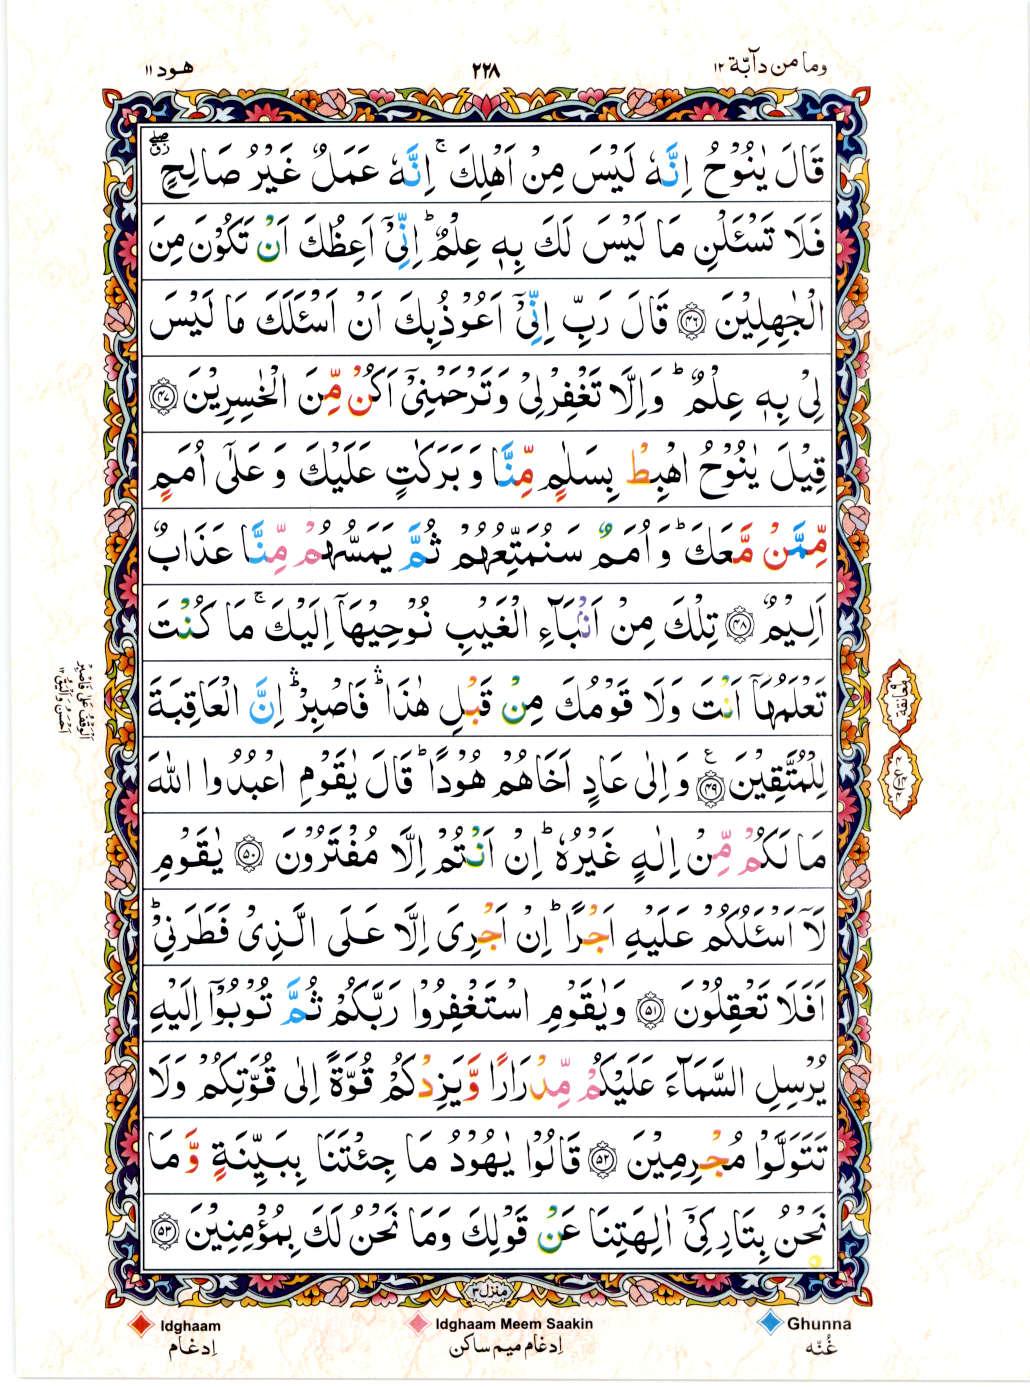 وما من دآبّة ١٢
٢٢٨
هود ١١
قَالَ يٰنُوْحُ اِنَّهٗ لَيْسَ مِنْ اَهْلِكَ ۚ اِنَّهٗ عَمَلٌ غَيْرُ صَالِحٍ ۖ
فَلَا تَسْـَٔلْنِ مَا لَيْسَ لَكَ بِهٖ عِلْمٌ ؕ اِنِّيْۤ اَعِظُكَ اَنْ تَكُوْنَ مِنَ
الْجٰهِلِيْنَ ﴿۴۶﴾ قَالَ رَبِّ اِنِّيْۤ اَعُوْذُبِكَ اَنْ اَسْـَٔلَكَ مَا لَيْسَ
لِيْ بِهٖ عِلْمٌ ؕ وَاِلَّا تَغْفِرْلِيْ وَتَرْحَمْنِيْۤ اَكُنْ مِّنَ الْخٰسِرِيْنَ ﴿۴۷﴾
قِيْلَ يٰنُوْحُ اهْبِطْ بِسَلٰمٍ مِّنَّا وَ بَرَكٰتٍ عَلَيْكَ وَ عَلٰۤى اُمَمٍ
مِّمَّنْ مَّعَكَ ؕ وَ اُمَمٌ سَنُمَتِّعُهُمْ ثُمَّ يَمَسُّهُمْ مِّنَّا عَذَابٌ
اَلِيْمٌ ﴿۴۸﴾ تِلْكَ مِنْ اَنْۢبَآءِ الْغَيْبِ نُوْحِيْهَاۤ اِلَيْكَ ۚ مَا كُنْتَ
تَعْلَمُهَاۤ اَنْتَ وَلَا قَوْمُكَ مِنْ قَبْلِ هٰذَا ۛؕ فَاصْبِرْ ۛؕ اِنَّ الْعَاقِبَةَ
لِلْمُتَّقِيْنَ ﴿۴۹﴾ ع وَ اِلٰى عَادٍ اَخَاهُمْ هُوْدًا ؕ قَالَ يٰقَوْمِ اعْبُدُوا اللّٰهَ
مَا لَكُمْ مِّنْ اِلٰهٍ غَيْرُهٗ ؕ اِنْ اَنْتُمْ اِلَّا مُفْتَرُوْنَ ﴿۵۰﴾ يٰقَوْمِ
لَاۤ اَسْـَٔلُكُمْ عَلَيْهِ اَجْرًا ؕ اِنْ اَجْرِيَ اِلَّا عَلَى الَّذِيْ فَطَرَنِيْ ؕ
اَفَلَا تَعْقِلُوْنَ ﴿۵۱﴾ وَيٰقَوْمِ اسْتَغْفِرُوْا رَبَّكُمْ ثُمَّ تُوْبُوْۤا اِلَيْهِ
يُرْسِلِ السَّمَآءَ عَلَيْكُمْ مِّدْرَارًا وَّيَزِدْكُمْ قُوَّةً اِلٰى قُوَّتِكُمْ وَلَا
تَتَوَلَّوْا مُجْرِمِيْنَ ﴿۵۲﴾ قَالُوْا يٰهُوْدُ مَا جِئْتَنَا بِبَيِّنَةٍ وَّ مَا
نَحْنُ بِتَارِكِيْۤ اٰلِهَتِنَا عَنْ قَوْلِكَ وَمَا نَحْنُ لَكَ بِمُؤْمِنِيْنَ ﴿۵۳﴾
معانقة ٩
منزل ٣
Idghaam
Idghaam Meem Saakin
Ghunna
اِدغام
اِدغام میم ساکن
غُنّه